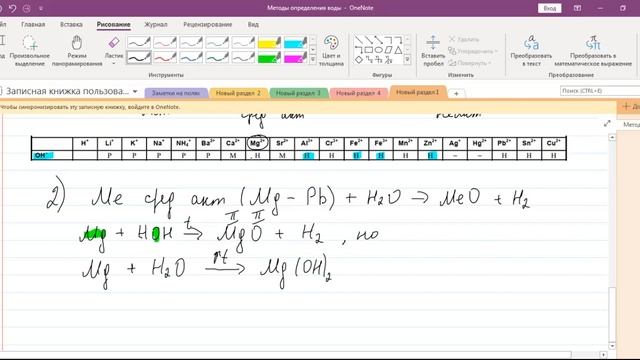 Методы определения воды - OneNote
Вход
Вставка Рисование Журнал Рецензирование Вид
Произвольное выделение
Режим панорамирования
Ластик
Инструменты
Фигуры
Вставить пробел
Удалить
Упорядочить
Повернуть
Изменить
Преобразовать в текст
Преобразовать в математическое выражение
Преобразование
Записная книжка пользова...
Заметки на полях
Новый раздел 2
Новый раздел 3
Новый раздел 4
Новый раздел 1
Поиск (CTRL+E)
Чтобы синхронизировать эту записную книжку, войдите в OneNote.
H⁺ Li⁺ K⁺ Na⁺ NH₄⁺ Ba²⁺ Ca²⁺ Mg²⁺ Sr²⁺ Al³⁺ Cr³⁺ Fe²⁺ Fe³⁺ Mn²⁺ Zn²⁺ Ag⁺ Hg²⁺ Pb²⁺ Sn²⁺ Cu²⁺
OH⁻ Р Р Р Р Р М Н М Н Н Н Н Н Н – – Н Н Н
2) Ме сред акт (Mg – Pb) + H₂O → MeO + H₂
Mg + HOH →t MgO + H₂, но
II II
Mg + H₂O →rt Mg(OH)₂